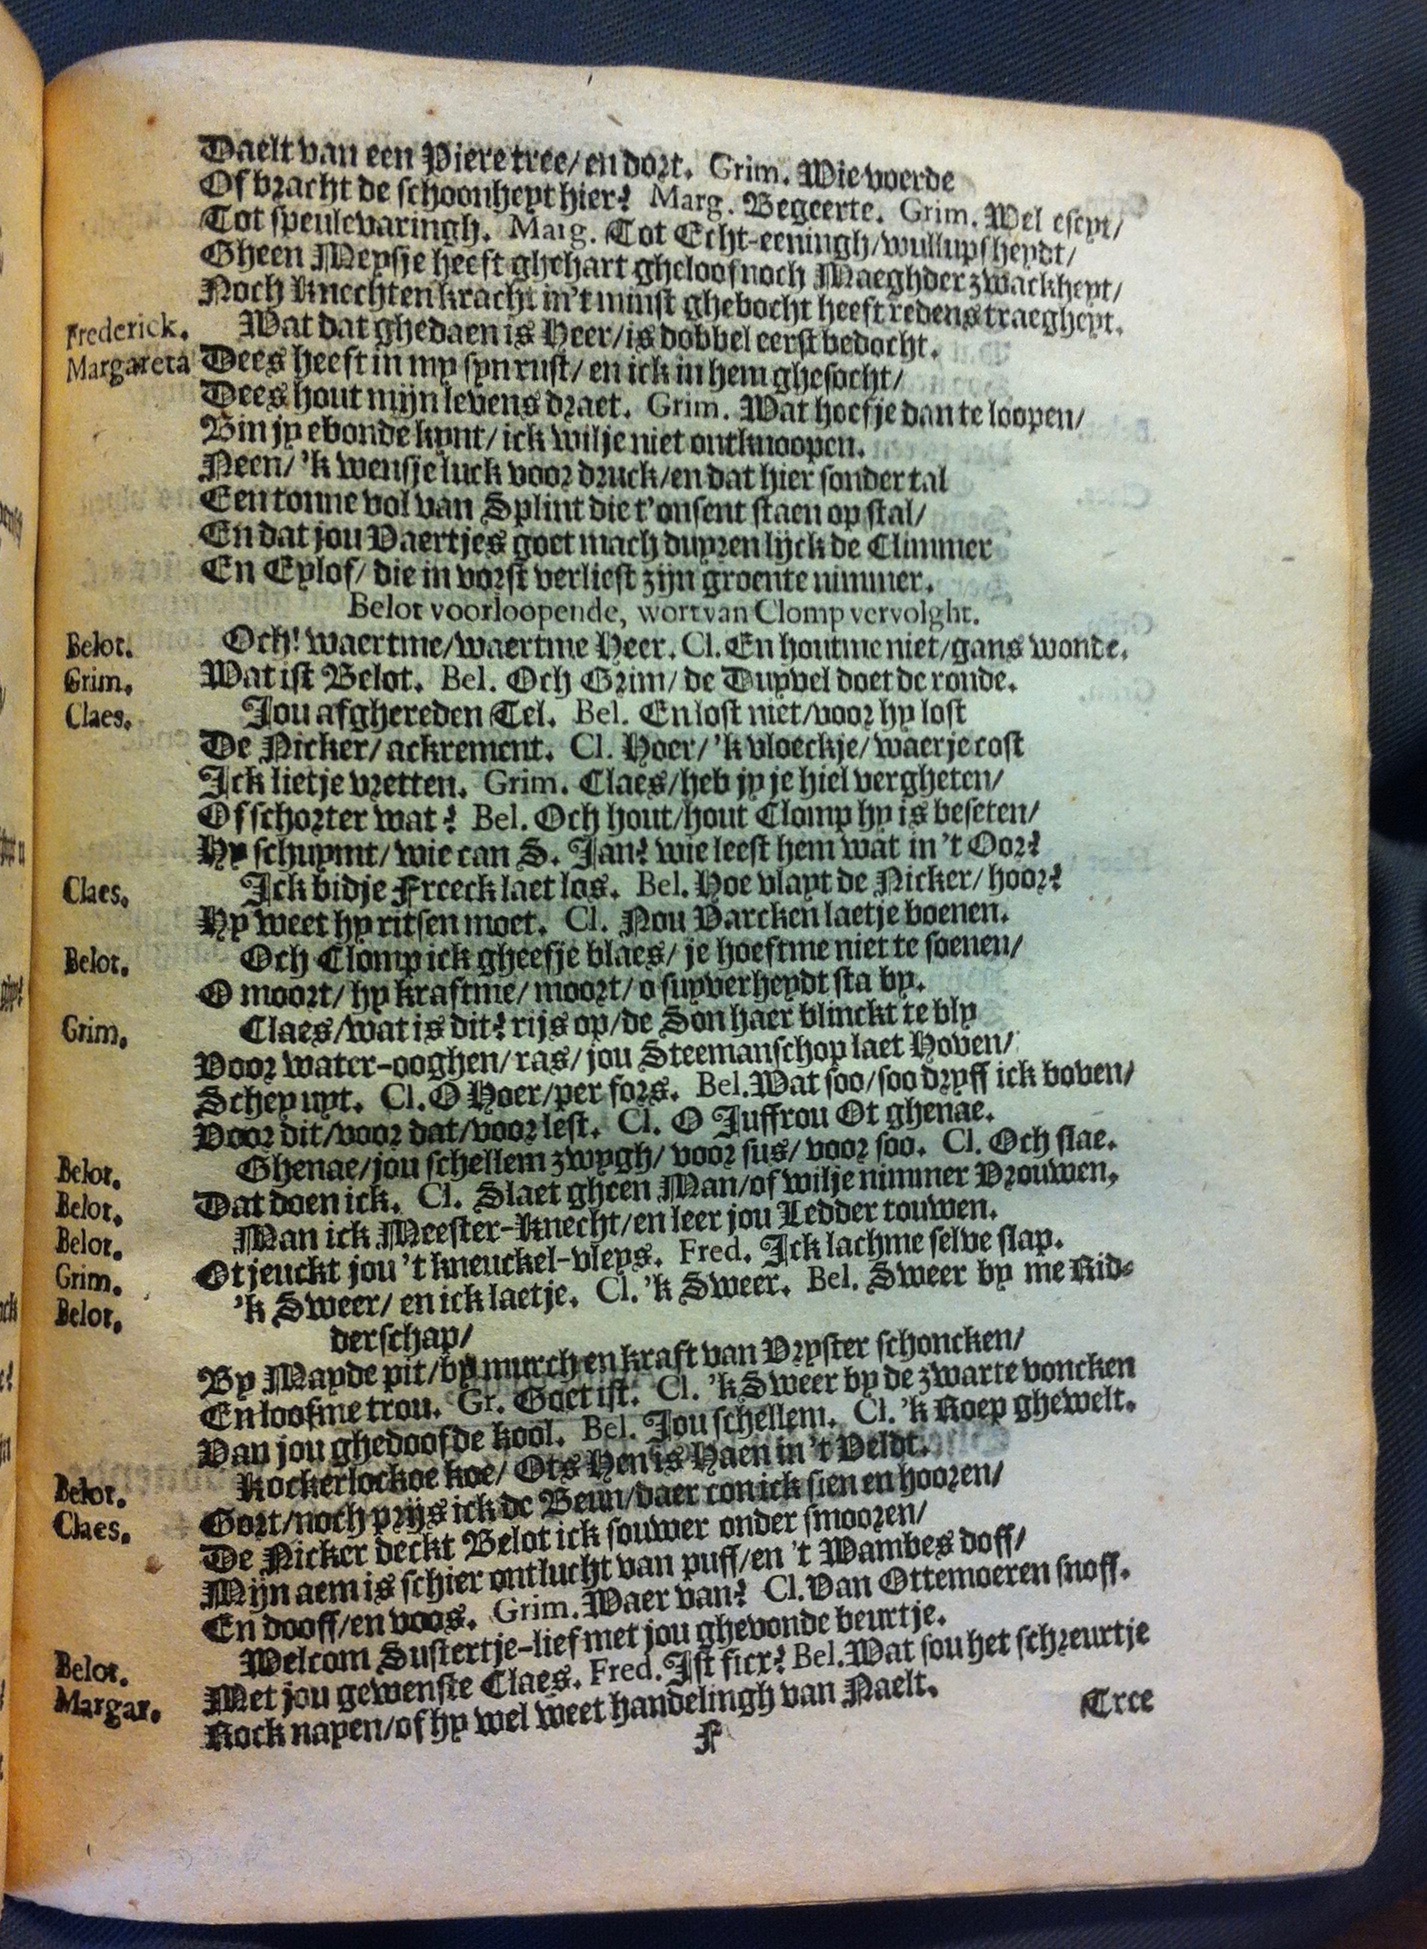 Daelt van een Piere tree/ en dort. Grim. Wie voerde
Of bracht de schoonheyt hier? Marg. Begeerte. Grim. Wel eseyt/
Tot speulevaringh. Marg. Tot Echt-eeningh/wullupsheydt/
Gheen Meysje heeft ghehart gheloof noch Maeghder zwackheyt/
Noch knechten kracht in't minst ghebocht heeft redens traegheyt.
Frederick. Wat dat ghedaen is Heer/is dobbel eerst bedocht.
Margareta Dees heeft in my syn rust/ en ick in hem ghesocht/
Dees hout mijn levens draet. Grim. Wat hoefje dan te loopen/
Bin jy ebonde kynt/ ick wilje niet ontknoopen.
Neen/ 'k wensje luck voor druck/en dat hier sonder tal
Een tonne vol van Splint die t'onsent staen op stal/
En dat jou Vaertjes goet mach duyren lijck de Climmer
En Eylof/ die in vorst verliest zijn groente nimmer.
Belot voorloopende, wort van Clomp vervolght.
Belot. Och! waertme/waertme Heer. Cl. En houtme niet/gans wonde.
Grim. Wat ist Belot. Bel. Och Grim/ de Duyvel doet de ronde.
Claes. Jou afghereden Tel. Bel. En lost niet/voor hy lost
De Nicker/ ackrement. Cl. Hoer/ 'k vloeckje/ waer je cost
Ick lietje vretten. Grim. Claes/heb jy je hiel vergheten/
Of schorter wat? Bel. Och hout/hout Clomp hy is beseten/
Hy schuymt/ wie can S. Jan? wie leest hem wat in 't Oor?
Claes. Ick bidje Freeck laet los. Bel. Hoe vlayt de Nicker/ hoor?
Hy weet hy ritsen moet. Cl. Nou Varcken laetje boenen.
Belot. Och Clomp ick gheefje blaes/ je hoeftme niet te soenen/
O moort/ hy kraftme/ moort/ o suyverheydt sta by.
Grim. Claes/wat is dit? rijs op/de Son haer blinckt te bly
Voor water-ooghen/ ras/ jou Steemanschop laet Hoven/
Schey uyt. Cl. O Hoer/per fors. Bel. Wat soo/soo dryff ick boven/
Voor dit/voor dat/voor lest. Cl. O Juffrou Ot ghenae.
Belot. Ghenae/jou schellem zwygh/ voor sus/ voor soo. Cl. Och slae.
Belot. Dat doen ick. Cl. Slaet gheen Man/of wilje nimmer Vrouwen,
Belot. Man ick Meester-knecht/en leer jou Ledder touwen.
Grim. Ot jeuckt jou 't kneuckel-vleys. Fred. Ick lachme selve slap.
Belot. 'k Sweer/ en ick laetje. Cl. 'k Sweer. Bel. Sweer by me Rid-
derschap/
By Mayde pit/by murch en kraft van Vryster schoncken/
En loofme trou. Gr. Goet ist. Cl. 'k Sweer by de zwarte voncken
Van jou ghedoofde kool. Bel. Jou schellem. Cl. 'k Roep ghewelt.
Belot. Kockerlockoe koe/ Ots Hen is Haen in 't Veldt.
Claes. Gort/noch prijs ick de Beun/daer con ick sien en hooren/
De Nicker deckt Belot ick souwer onder smooren/
Mijn aem is schier ontlucht van puff/en 't Wambes doff/
En dooff/en voos. Grim. Waer van? Cl. Van Ottemoeren snoff.
Belot. Welcom Sustertje-lief met jou ghevonde beurtje.
Margar. Met jou gewenste Claes. Fred. Ist ficx? Bel. Wat sou het schreurtje
Rock napen/of hy wel weet handelingh van Naelt.
F Tree